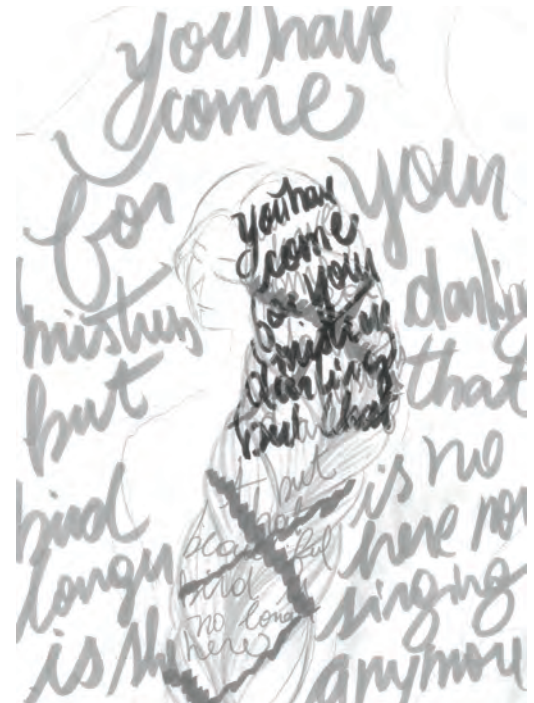 you have
come
for your
mistress darling
but that
bird is no
longer here nor
is she singing
anymore
you have
come
for your
mistress
darling
but that
but
that
beautiful
bird
no longer
here